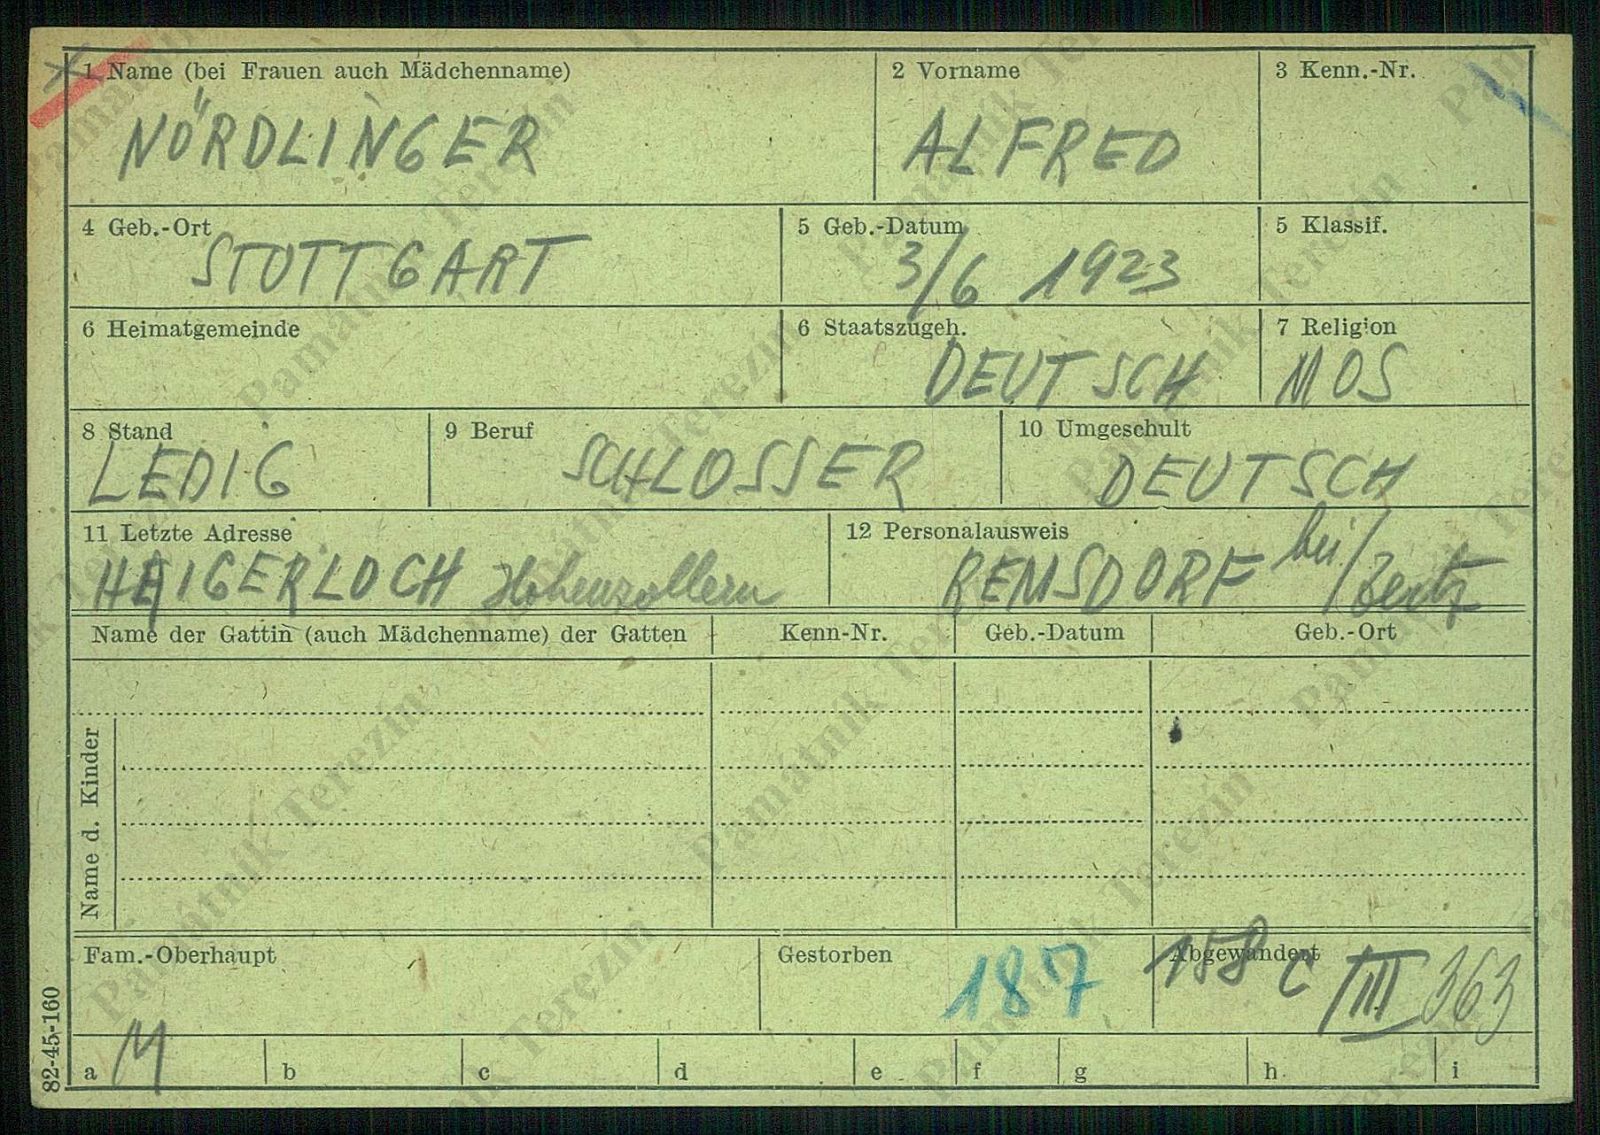 1 Name (bei Frauen auch Mädchenname)
NÖRDLINGER
2 Vorname
ALFRED
3 Kenn.-Nr.
4 Geb.-Ort
STUTTGART
5 Geb.-Datum
3/6 1923
5 Klassif.
6 Heimatgemeinde
6 Staatszugeh.
DEUTSCH
7 Religion
MOS
8 Stand
LEDIG
9 Beruf
SCHLOSSER
10 Umgeschult
DEUTSCH
11 Letzte Adresse
HAIGERLOCH Hohenzollern
12 Personalausweis
REMSDORF bei/Zeitz
Name der Gattin (auch Mädchenname) der Gatten
Kenn-Nr.
Geb.-Datum
Geb.-Ort
Name d. Kinder
Fam.-Oberhaupt
Gestorben
187
Abgewandert
158 C /III 363
82-45-160
a M b c d e f g h i
Památník Terezín